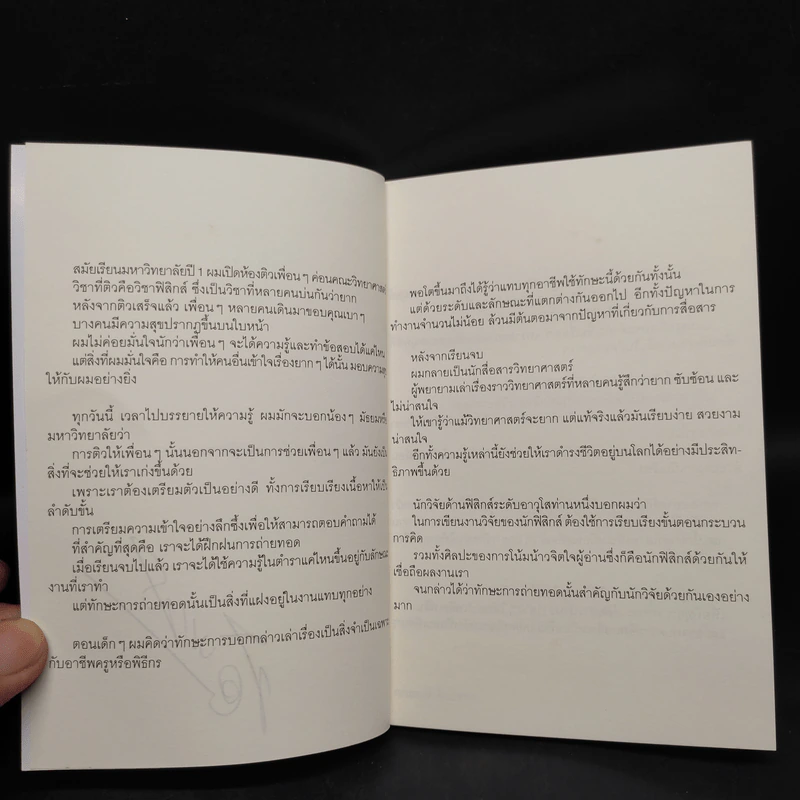 สมัยเรียนมหาวิทยาลัยปี 1 ผมเปิดห้องติวเพื่อนๆ ค่อนคณะวิทยาศาสตร์
วิชาที่ติวคือวิชาฟิสิกส์ ซึ่งเป็นวิชาที่หลายคนบ่นกันว่ายาก
หลังจากติวเสร็จแล้ว เพื่อนๆ หลายคนเดินมาขอบคุณเบาๆ
บางคนมีความสุขปรากฏขึ้นบนใบหน้า
ผมไม่ค่อยมั่นใจนักว่าเพื่อนๆ จะได้ความรู้และทำข้อสอบได้แค่ไหน
แต่สิ่งที่ผมมั่นใจคือ การทำให้คนอื่นเข้าใจเรื่องยากๆ ได้นั้น มอบความสุข
ให้กับผมอย่างยิ่ง
ทุกวันนี้ เวลาไปบรรยายให้ความรู้ ผมมักจะบอกน้องๆ มัธยม
มหาวิทยาลัยว่า
การติวให้เพื่อนๆ นั้นนอกจากจะเป็นการช่วยเพื่อนๆ แล้ว มันยังเป็น
สิ่งที่จะช่วยให้เราเก่งขึ้นด้วย
เพราะเราต้องเตรียมตัวเป็นอย่างดี ทั้งการเรียบเรียงเนื้อหาให้เป็น
ลำดับขั้น
การเตรียมความเข้าใจอย่างลึกซึ้งเพื่อให้สามารถตอบคำถามได้
ที่สำคัญที่สุดคือ เราจะได้ฝึกฝนการถ่ายทอด
เมื่อเรียนจบไปแล้ว เราจะได้ใช้ความรู้ในตำราแค่ไหนขึ้นอยู่กับลักษณะ
งานที่เราทำ
แต่ทักษะการถ่ายทอดนั้นเป็นสิ่งที่แฝงอยู่ในงานแทบทุกอย่าง
ตอนเด็กๆ ผมคิดว่าทักษะการบอกกล่าวเล่าเรื่องเป็นสิ่งจำเป็นเฉพาะ
กับอาชีพครูหรือพิธีกร
พอโตขึ้นมาถึงได้รู้ว่าแทบทุกอาชีพใช้ทักษะนี้ด้วยกันทั้งนั้น
แต่ด้วยระดับและลักษณะที่แตกต่างกันออกไป อีกทั้งปัญหาในการ
ทำงานจำนวนไม่น้อย ล้วนมีต้นตอมาจากปัญหาที่เกี่ยวกับการสื่อสาร
หลังจากเรียนจบ
ผมกลายเป็นนักสื่อสารวิทยาศาสตร์
ผู้พยายามเล่าเรื่องราววิทยาศาสตร์ที่หลายคนรู้สึกว่ายาก ซับซ้อน และ
ไม่น่าสนใจ
ให้เขารู้ว่าแม้วิทยาศาสตร์จะยาก แต่แท้จริงแล้วมันเรียบง่าย สวยงาม
น่าสนใจ
อีกทั้งความรู้เหล่านี้ยังช่วยให้เราดำรงชีวิตอยู่บนโลกได้อย่างมีประสิท-
ธิภาพขึ้นด้วย
นักวิจัยด้านฟิสิกส์ระดับอาวุโสท่านหนึ่งบอกผมว่า
ในการเขียนงานวิจัยของนักฟิสิกส์ ต้องใช้การเรียบเรียงขั้นตอนกระบวน
การคิด
รวมทั้งศิลปะของการโน้มน้าวจิตใจผู้อ่านซึ่งก็คือนักฟิสิกส์ด้วยกันให้
เชื่อถือผลงานเรา
จนกล่าวได้ว่าทักษะการถ่ายทอดนั้นสำคัญกับนักวิจัยด้วยกันเองอย่าง
มาก